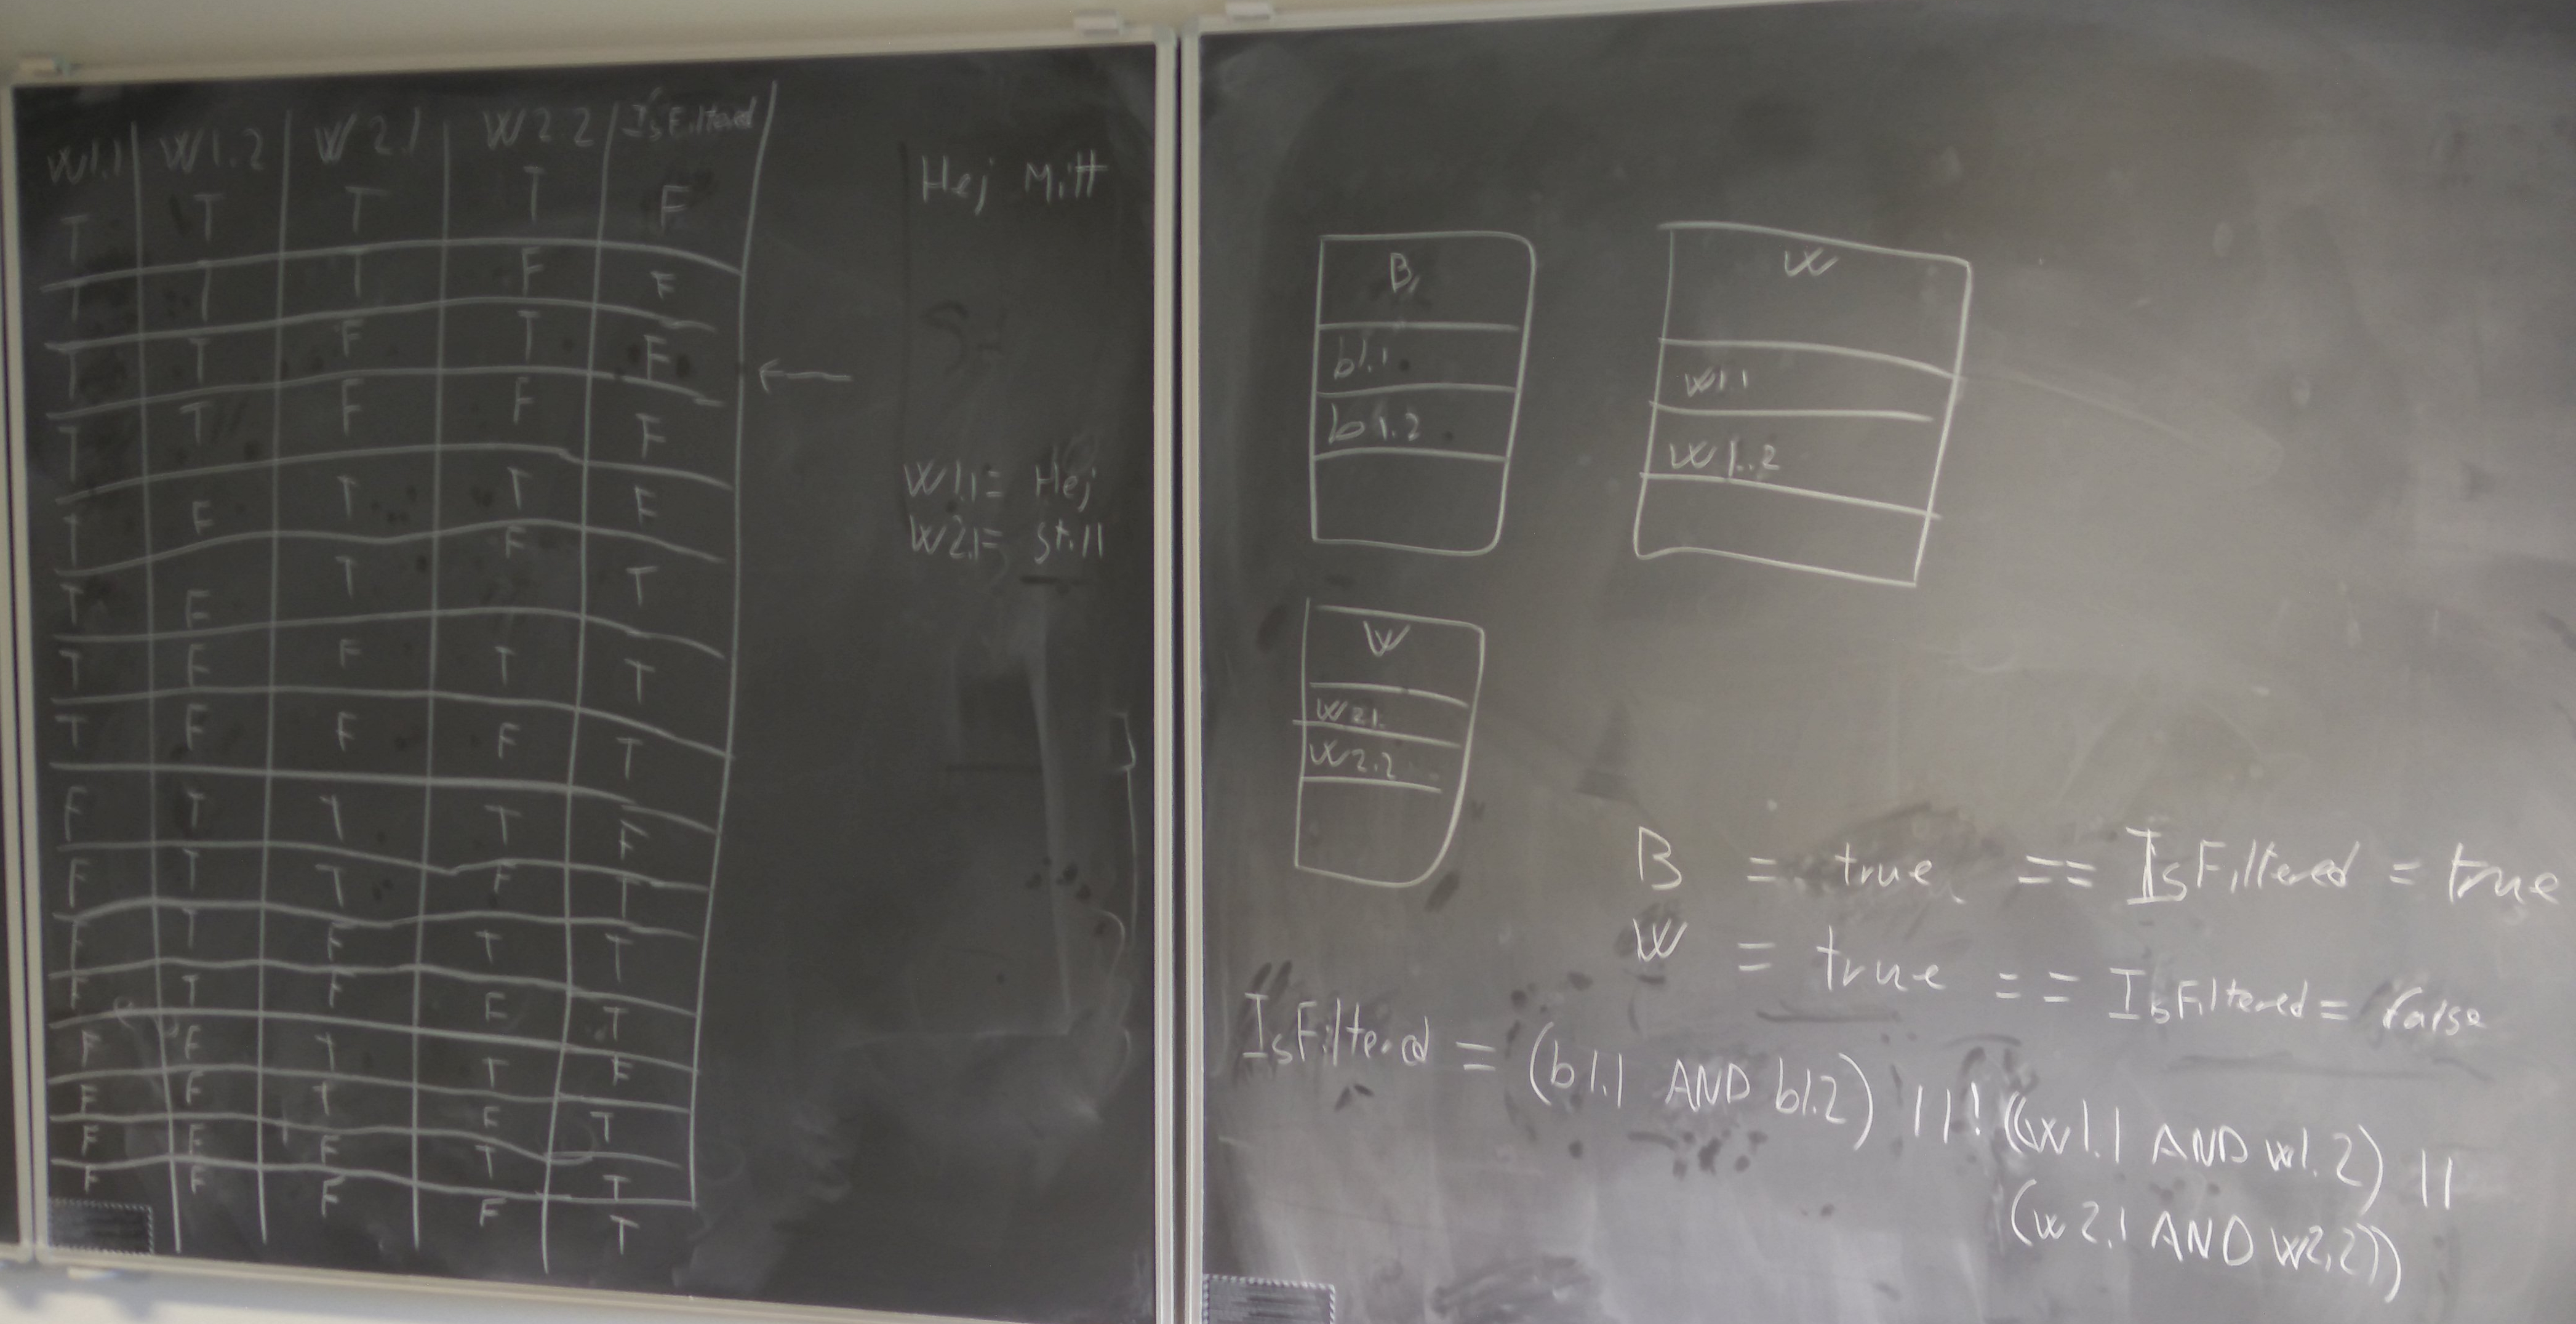 W1.1 W1.2 W2.1 W2.2 IsFiltered
T T T T F
T T T F F
T T F T F
T T F F F
T F T T F
T F T F T
T F F T T
T F F F T
F T T T F
F T T F T
F T F T T
F T F F T
F F T T F
F F T F T
F F F T T
F F F F T
Hej Mitt
←
W1.1= Hej
W2.1= Still
B
b1.1
b1.2
W
w1.1
W1.2
W
W21.
W2.2
B = true == IsFiltered = true
W = true == IsFiltered = false
IsFiltered = (b1.1 AND b1.2) ||! ((w1.1 AND w1.2) ||
(w2.1 AND w2.2))